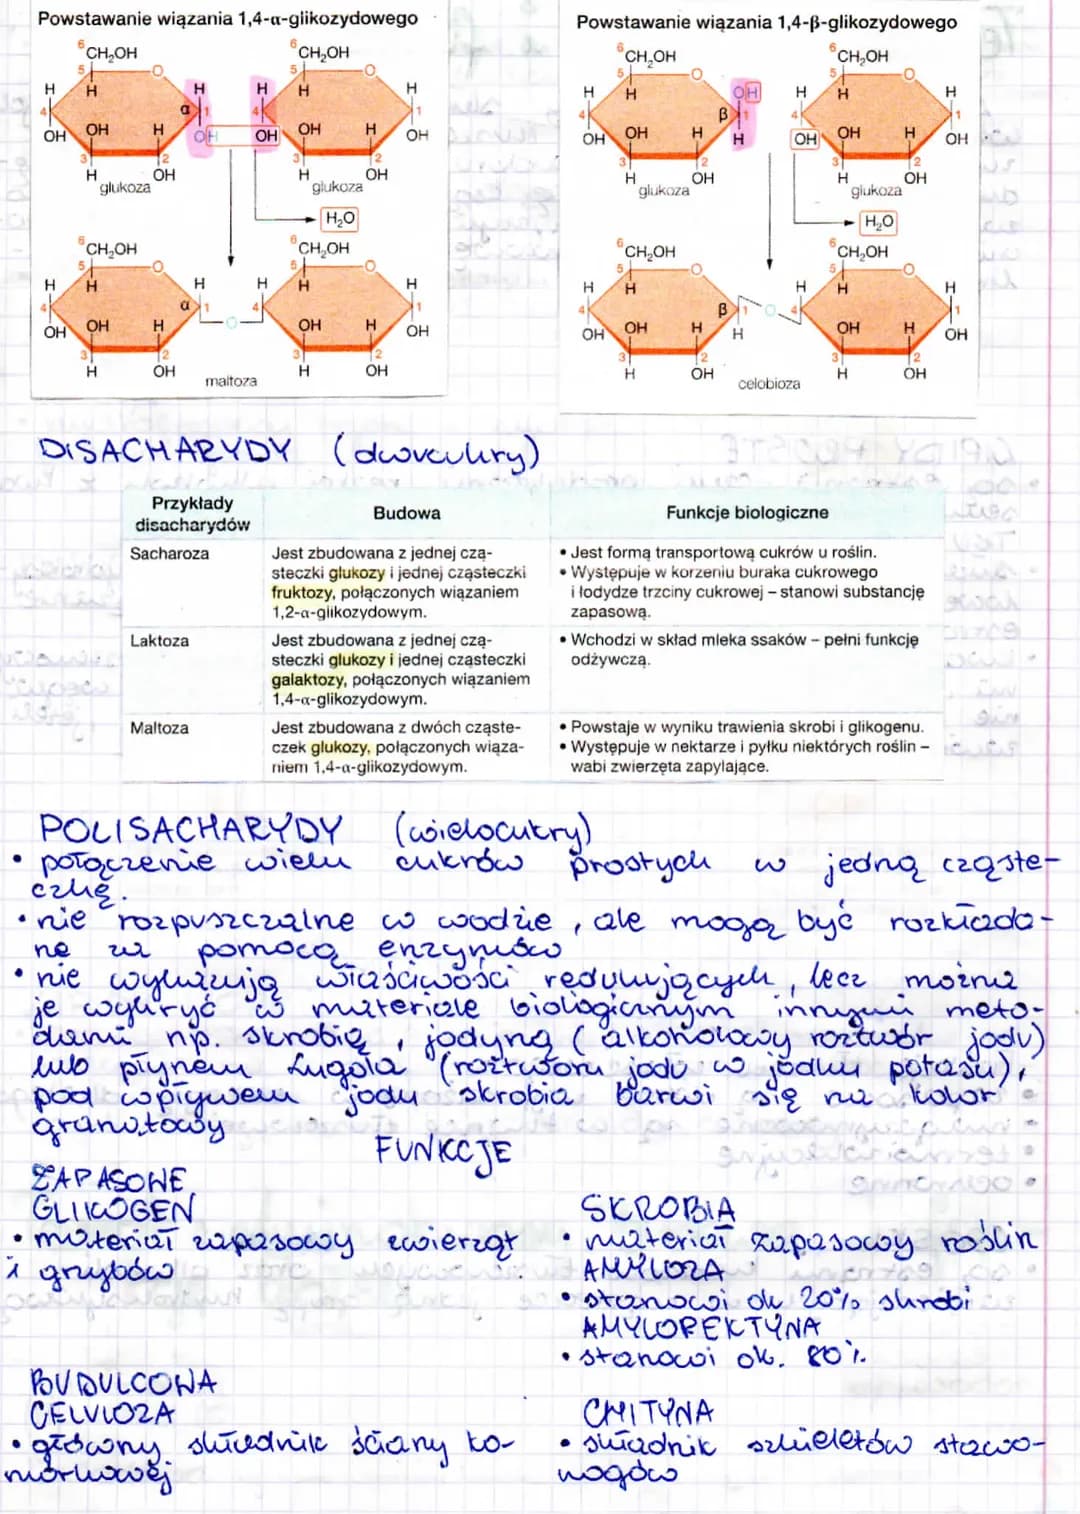 Powstawanie wiązania 1,4-α-glikozydowego
⁶CH₂OH ⁶CH₂OH
5 O 5 O
H H H H H H
4 α 1 4 1
OH OH H OH OH OH H OH
3 2 3 2
H OH H OH
glukoza glukoza
H₂O
⁶CH₂OH ⁶CH₂OH
5 O 5 O
H H H H H H
4 α 1 4 1
OH OH H O OH H OH
3 2 3 2
H OH H OH
maltoza
Powstawanie wiązania 1,4-β-glikozydowego
⁶CH₂OH ⁶CH₂OH
5 O 5 O
H H OH H H H
4 β 1 4 1
OH OH H H OH OH H OH
3 2 3 2
H OH H OH
glukoza glukoza
H₂O
⁶CH₂OH ⁶CH₂OH
5 O 5 O
H H H H H
4 β 1 O 4 1
OH OH H H OH H OH
3 2 3 2
H OH H OH
celobioza
DISACHARYDY (dwucukry)
Przykłady
disacharydów
Budowa
Funkcje biologiczne
Sacharoza
Jest zbudowana z jednej czą-
steczki glukozy i jednej cząsteczki
fruktozy, połączonych wiązaniem
1,2-α-glikozydowym.
• Jest formą transportową cukrów u roślin.
• Występuje w korzeniu buraka cukrowego
i łodydze trzciny cukrowej – stanowi substancję
zapasową.
Laktoza
Jest zbudowana z jednej czą-
steczki glukozy i jednej cząsteczki
galaktozy, połączonych wiązaniem
1,4-α-glikozydowym.
• Wchodzi w skład mleka ssaków – pełni funkcję
odżywczą.
Maltoza
Jest zbudowana z dwóch cząste-
czek glukozy, połączonych wiąza-
niem 1,4-α-glikozydowym.
• Powstaje w wyniku trawienia skrobi i glikogenu.
• Występuje w nektarze i pyłku niektórych roślin –
wabi zwierzęta zapylające.
POLISACHARYDY (wielocukry)
• połączenie wielu cukrów prostych w jedną cząste-
czkę.
• nie rozpuszczalne w wodzie, ale mogą być rozkłada-
ne za pomocą enzymów
• nie wykazują właściwości redukujących, lecz można
je wykryć w materiale biologicznym innymi meto-
dami np. skrobią, jodyną (alkoholowy roztwór jodu)
lub płynem Lugola (roztworu jodu w jodku potasu),
pod wpływem jodu skrobia barwi się na kolor
granatowy
FUNKCJE
ZAPASOWE
GLIKOGEN
• materiał zapasowy zwierząt
i grzybów
SKROBIA
• materiał zapasowy roślin
AMYLOZA
• stanowi ok 20% skrobi
AMYLOPEKTYNA
• stanowi ok. 80%.
BUDULCOWA
CELULOZA
• główny składnik ściany ko-
mórkowej
CHITYNA
• składnik szkieletów stawo-
nogów